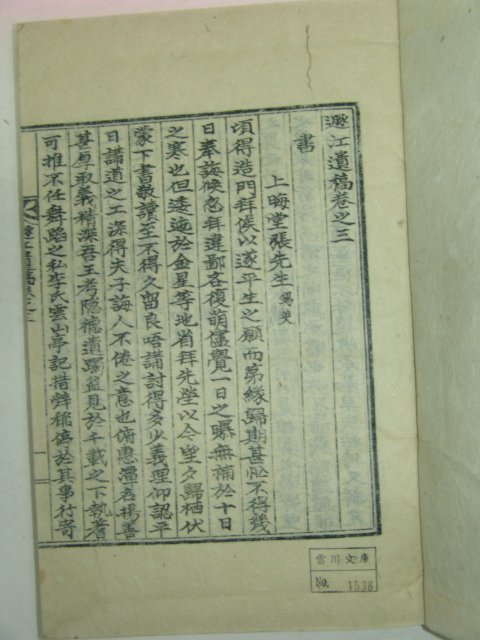 遯江遺稿卷之三
書
上晦堂張先生 錫英
頃得造門拜候以遂平生之願而第緣歸期甚忙不得幾
日奉誨候忽拜違鄙吝復萌儘覺一日之曝無補於十日
之寒也但逶迤於金星等地省拜先塋以今望夕歸栖伏
蒙下書敬讀至不得久留良唔講討得多少義理仰認平
日講道之工深得夫子誨人不倦之意也俯惠溫若揚善
甚專取義精深吾王考隱德遺躅益見於千載之下執着
可推不任舞蹈之私李氏雲山亭記措辭稱停於其事行寄
雲川文庫
No. 1538